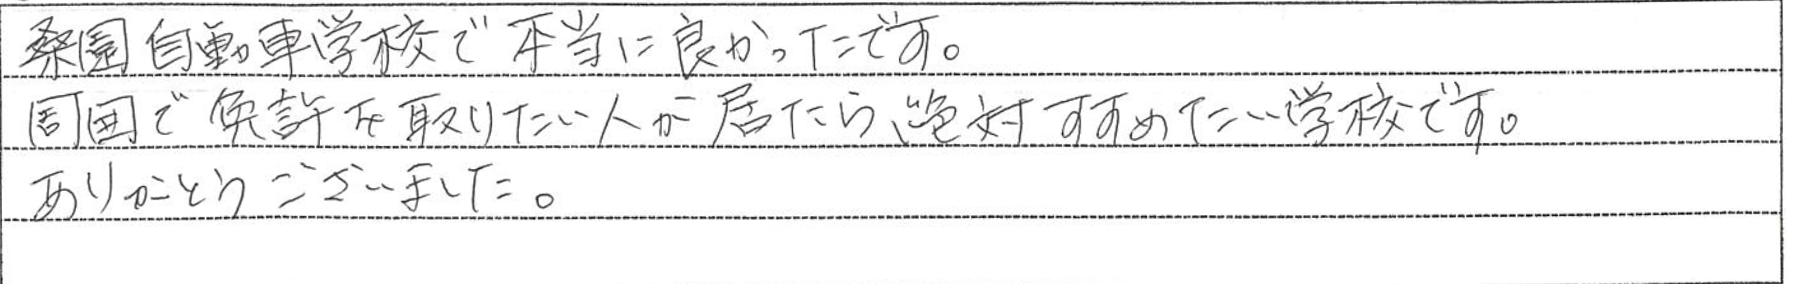 桑園自動車学校で本当に良かったです。
周囲で免許を取りたい人が居たら、絶対すすめたい学校です。
ありがとうございました。